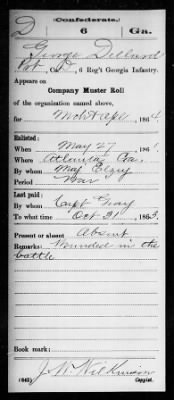 D
(Confederate.)
6 Ga.
George Dellund
Pvt, Co. D, 6 Reg't Georgia Infantry.
Appears on
Company Muster Roll
of the organization named above,
for Mch & Apl, 1864
Enlisted:
When May 27, 186 1.
Where Atlanta Ga.
By whom Maj Elzy
Period War
Last paid:
By whom Capt Gray
To what time Oct 31, 1863.
Present or absent Absent
Remarks: Wounded in the
battle
Book mark:
J. W. Wilkinson
(642) Copyist.